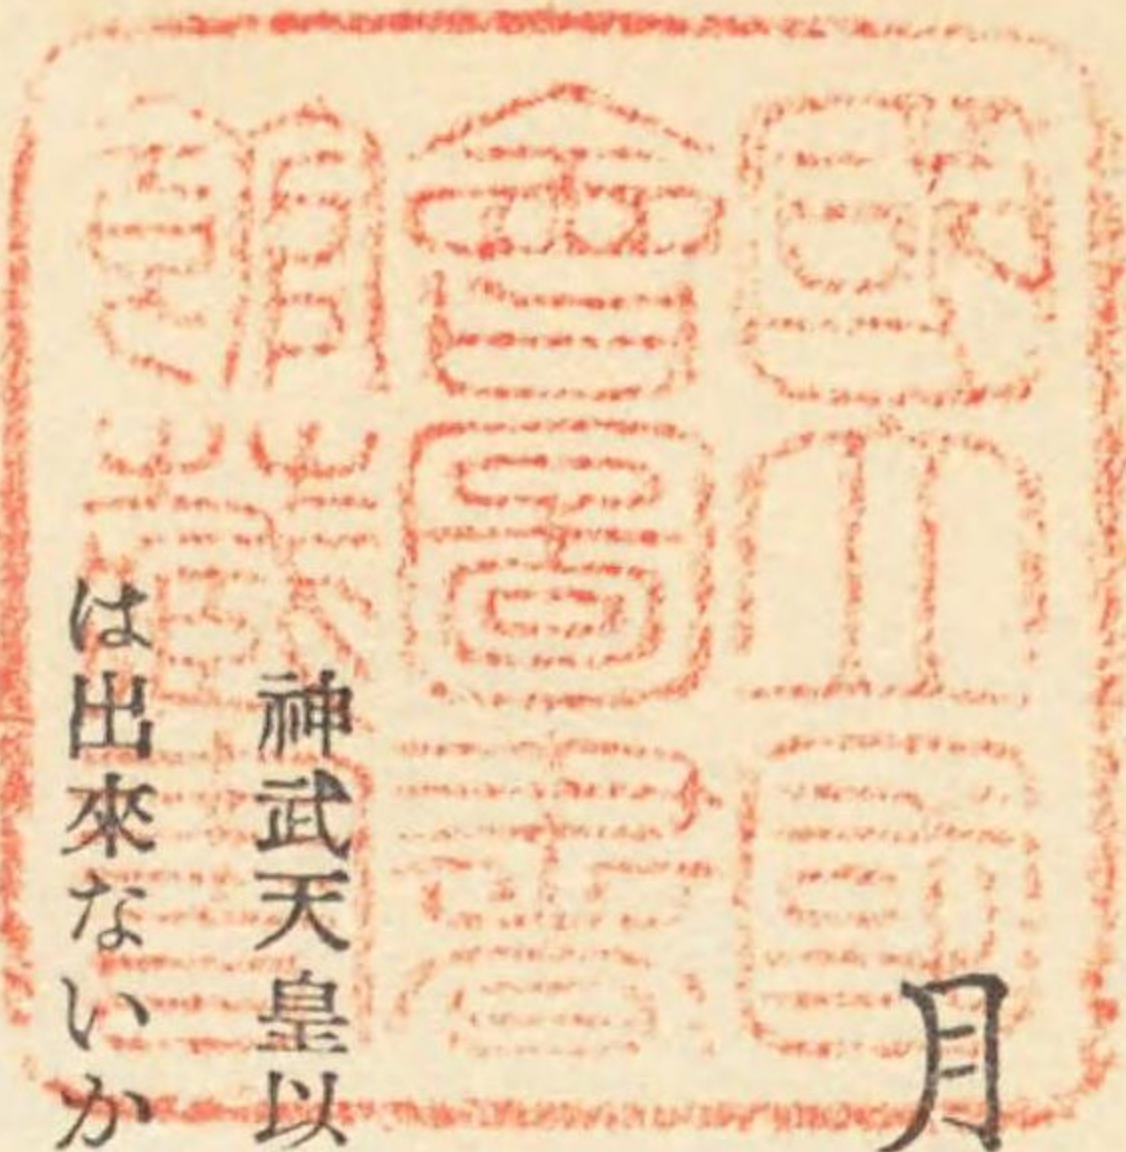 國立國
會圖書
館藏書
月
神武天皇以
は出來ないか